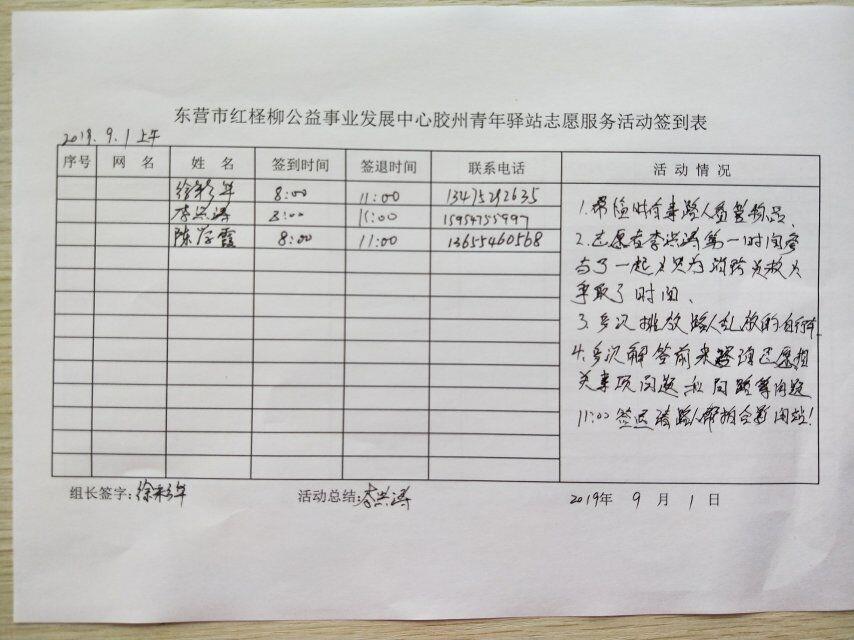 东营市红柽柳公益事业发展中心胶州青年驿站志愿服务活动签到表
2019.9.1上午
序号 网 名 姓 名 签到时间 签退时间 联系电话 活 动 情 况
徐彩年 8:00 11:00 13475292635
李兴涛 8:00 11:00 15954755997
陈存霞 8:00 11:00 13655460568
1.帮临时有事路人看管物品、
2.志愿者李兴涛第一时间参
与了一起火灾为消防员救火
争取了时间、
3.多次排放路人乱放的自行车
4.多次解答前来咨询志愿相
关事项问题和问路等问题
11:00签退请路人帮拍合影闭站!
组长签字:徐彩年 活动总结:李兴涛 2019年 9 月 1 日